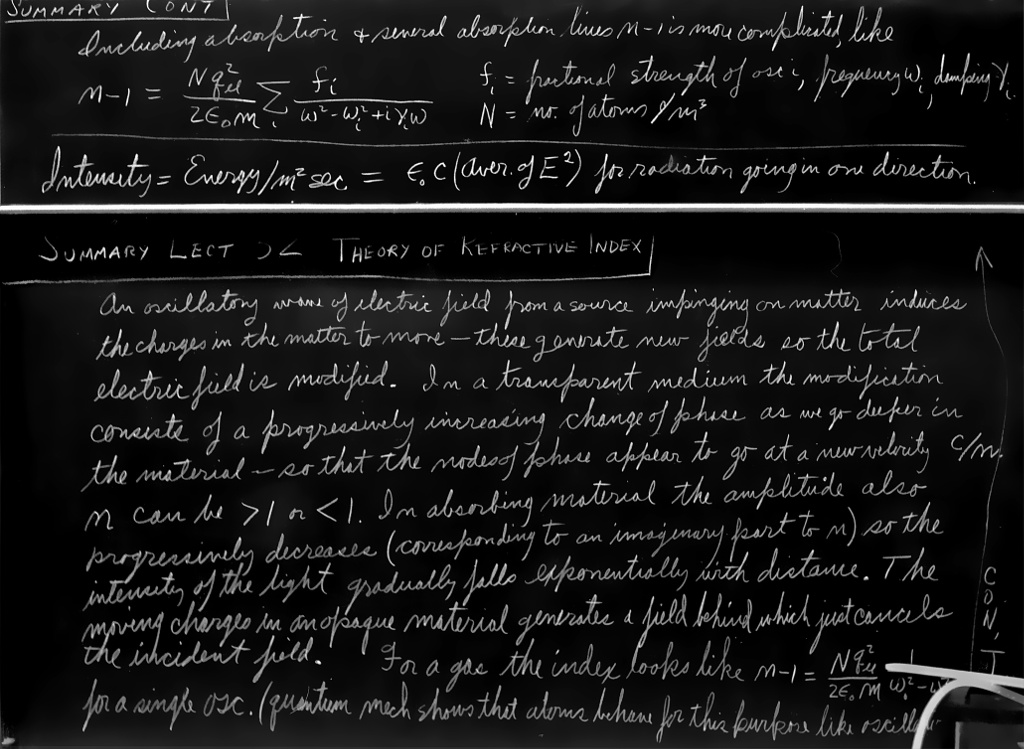 SUMMARY CONT
Including absorption & several absorption lines n-1 is more complicated, like
n-1 = Nq²el/2ε₀m Σi fi/(ω²-ωi²+iγiω) fi = fractional strength of osc i, frequency ωi, damping γi.
N = no. of atoms/m³
Intensity = Energy/m² sec = ε₀c (aver. of E²) for radiation going in one direction.
SUMMARY LECT THEORY OF REFRACTIVE INDEX
An oscillatory wave of electric field from a source impinging on matter induces
the charges in the matter to move – these generate new fields so the total
electric field is modified. In a transparent medium the modification
consists of a progressively increasing change of phase as we go deeper in
the material – so that the nodes of phase appear to go at a new velocity c/n.
n can be >1 or <1. In absorbing material the amplitude also
progressively decreases (corresponding to an imaginary part to n) so the
intensity of the light gradually falls exponentially with distance. The
moving charges in an opaque material generates a field behind which just cancels
the incident field. For a gas the index looks like n-1 = Nq²el/2ε₀m 1/ωi²-
for a single osc. (quantum mech shows that atoms behave for this purpose like
CON'T